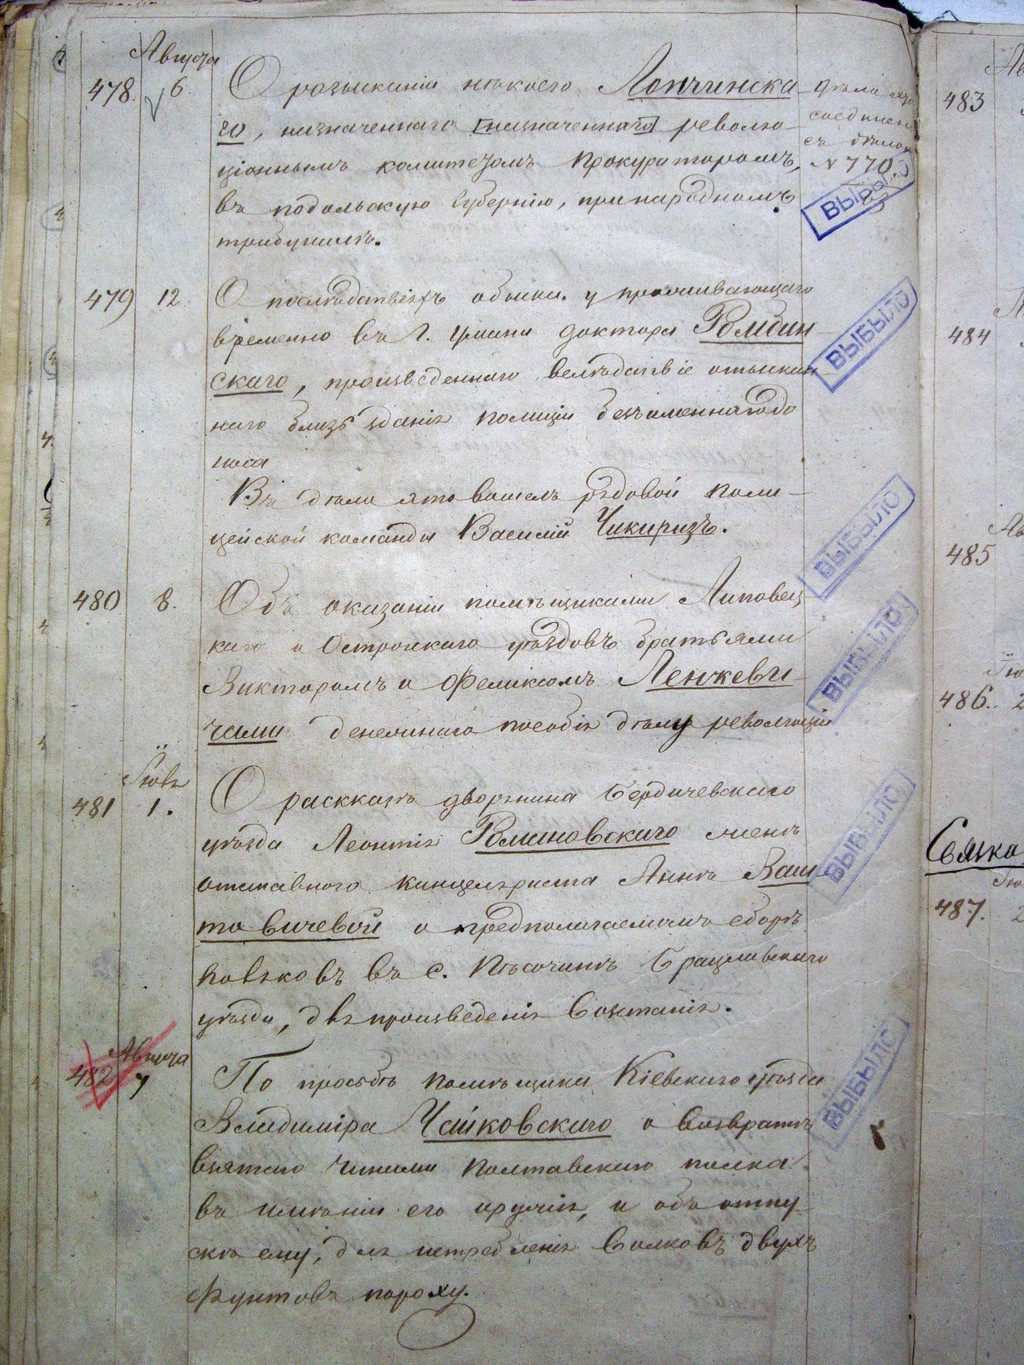 Августа
478. 6. О розысканіи нѣкоего Лопчинска-
го, назначеннаго [назначеннаго] револю-
ціоннымъ комитетомъ прокуроромъ,
въ подольскую Губернію, при народномъ
трибуналѣ.
дѣло это
соединено
съ дѣлом
N 770.
ВЫБЫЛО
479 12 О послѣдствіяхъ обыска у проживающаго
временно въ Г. Умани доктора Ромбин
скаго, произведеннаго вслѣдствіе отыскан
наго близь зданія полиціи безъименнаго до
носа
Въ дѣло это вошелъ рядовой поли-
цейской команды Василій Чикиризъ.
ВЫБЫЛО
ВЫБЫЛО
480 8. Объ оказаніи помѣщиками Липовец
каго и Острожскаго уѣздовъ братьями
Викторомъ и Феликсомъ Ленкеви-
чами денежнаго пособія дѣлу революціи
ВЫБЫЛО
Іюля
481 1. О розсказѣ дворянина Бердичевскаго
уѣзда Леонтія Романовскаго женѣ
отставного канцеляриста Аннѣ Ваш
товичевой о предполагаемомъ сборѣ
поляковъ въ с. Пѣсочинѣ Брацлавскаго
уѣзда, для произведенія Возстанія.
ВЫБЫЛО
Августа
482 7 По просьбѣ помѣщика Кіевскаго уѣзда
Владиміра Чайковскаго о возвратѣ
взятаго чинами Полтавскаго полка
въ имѣніи его оружія, и объ отпу-
скѣ ему, для истребленія Волковъ двухъ
фунтовъ пороху.
ВЫБЫЛО
483
484
485
486. 2
487. 2